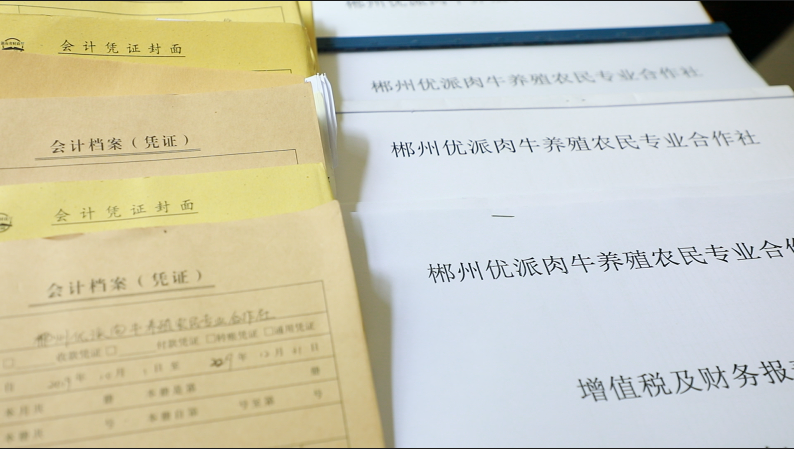 会计凭证封面
会计档案（凭证）
会计凭证封面
会计档案（凭证）
郴州优派肉牛养殖农民专业合作社
收款凭证 □ 付款凭证 □转账凭证 □通用凭证
自 2019 年 10 月 1 日 至 2019 年 12 月 31 日
本月共 册 本册是第 册
本册共 号 本册自第 号至第 号
郴州优派肉牛养殖农民专业合作社
郴州优派肉牛养殖农民专业合作社
郴州优派肉牛养殖农民专业合作社
郴州优派肉牛养殖农民专业合
增值税及财务报